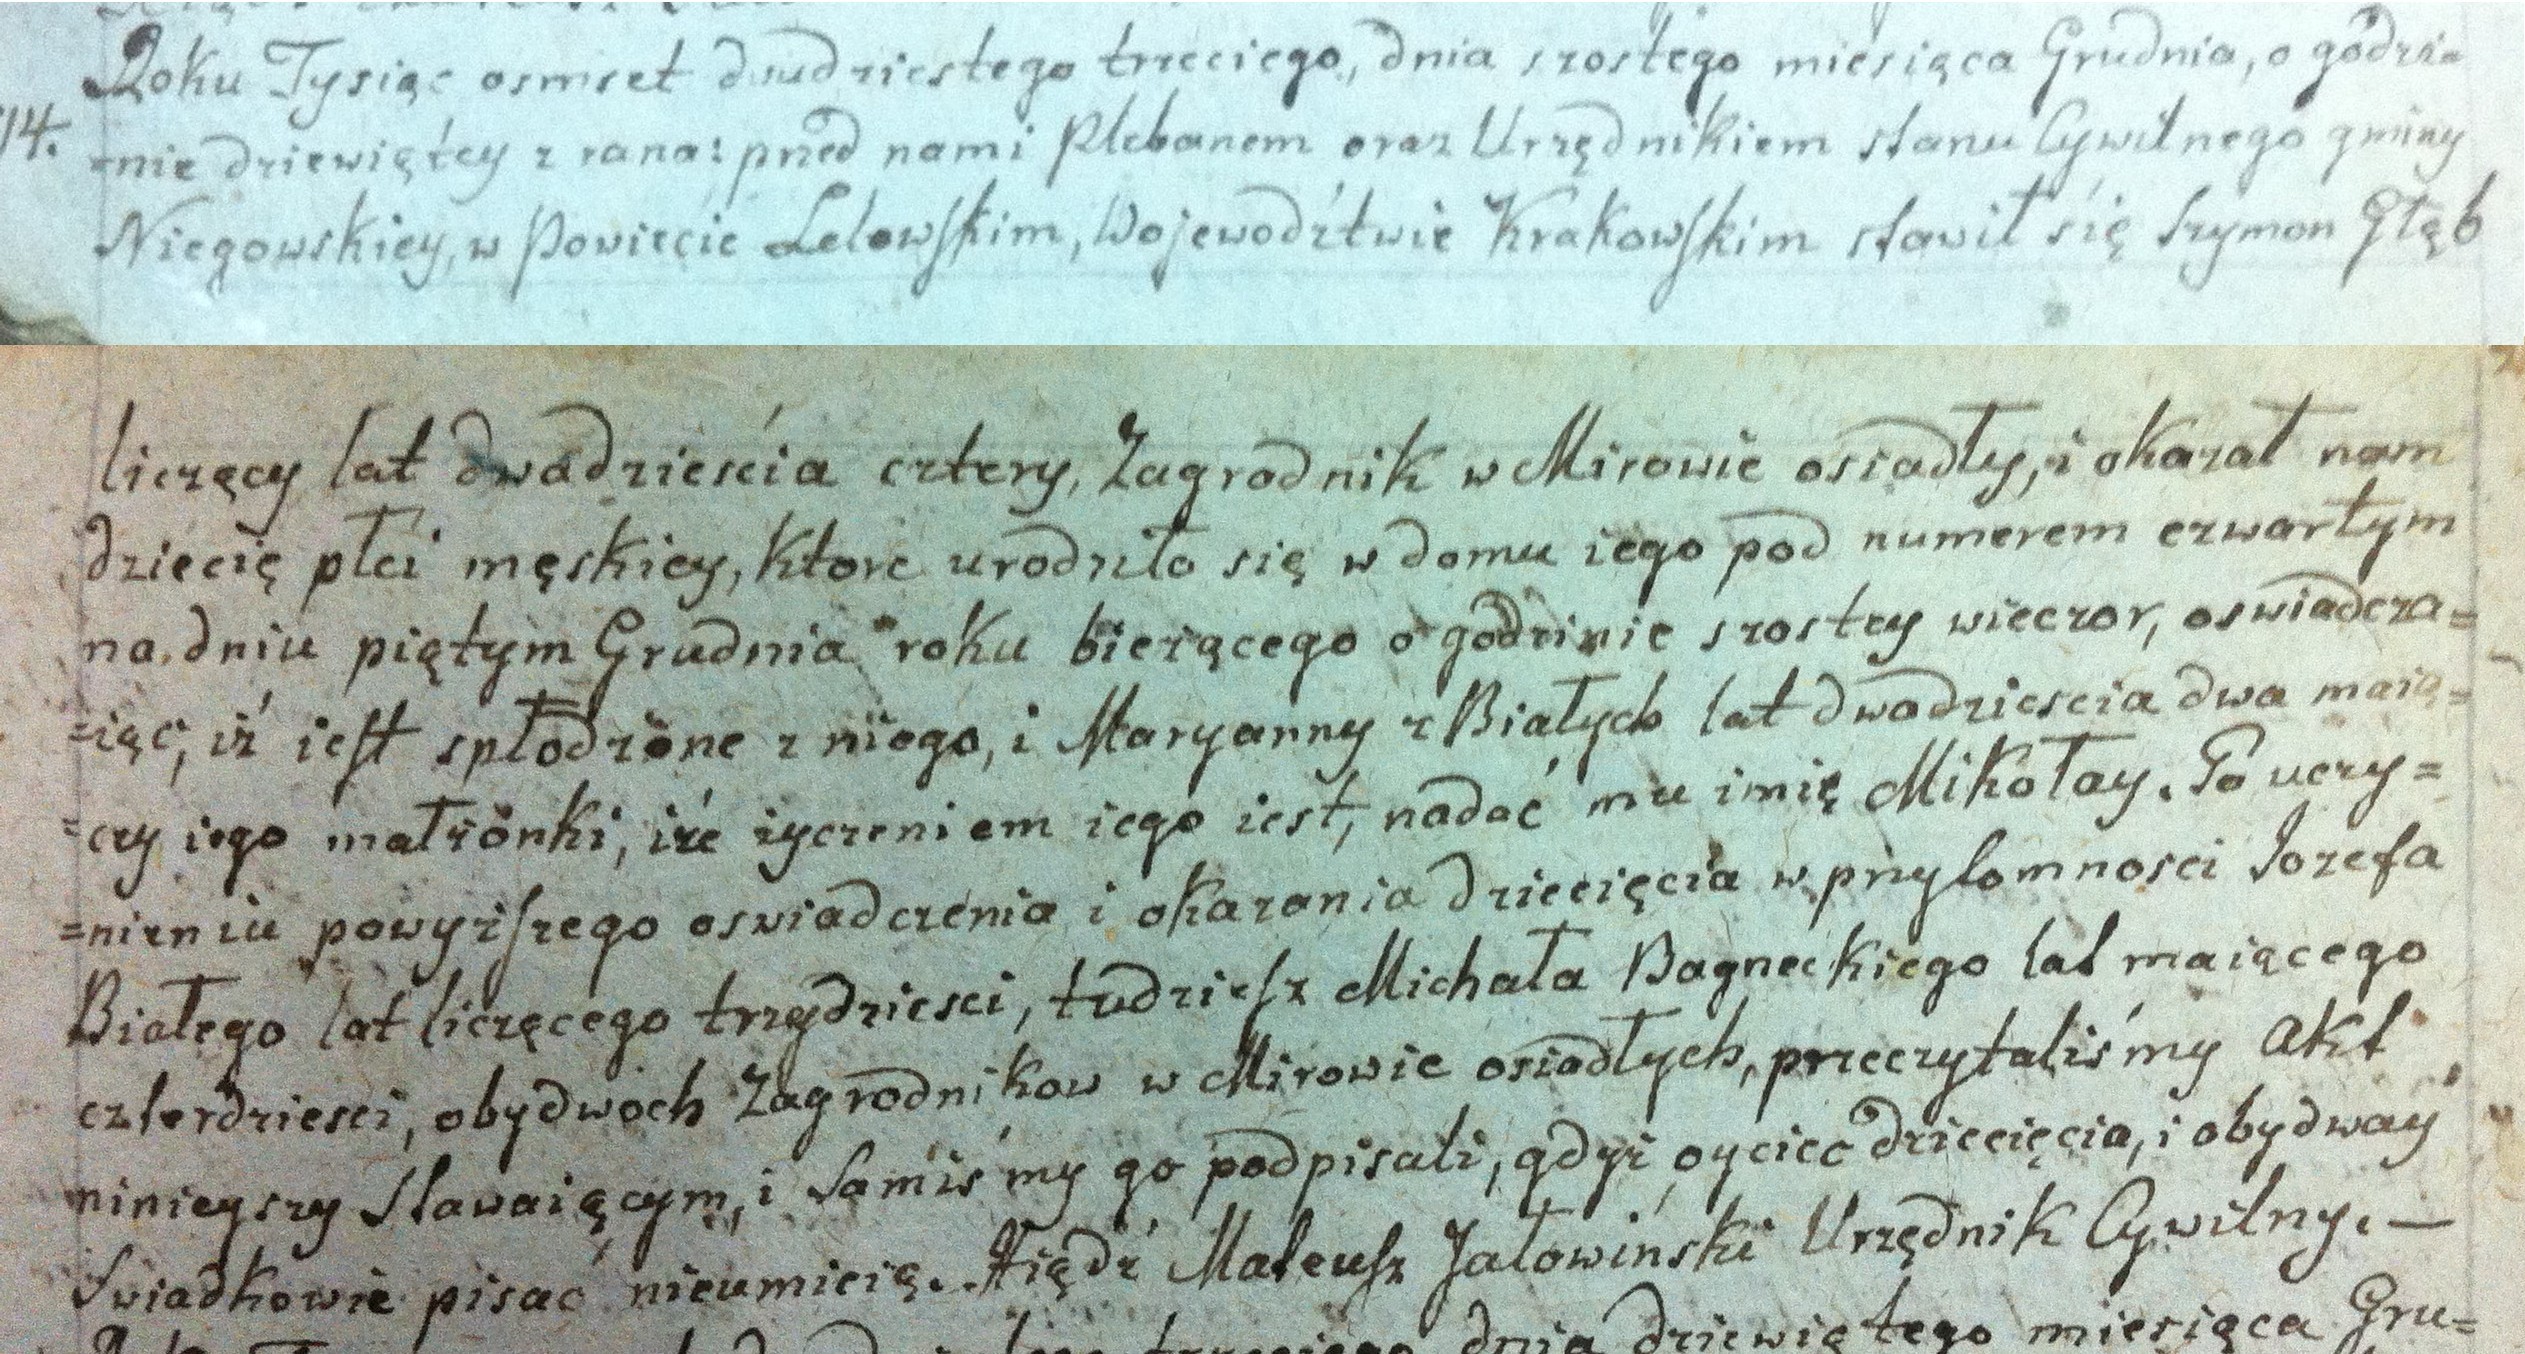 Roku Tysiąc osmset dwudziestego trzeciego, dnia szostego miesiąca Grudnia, o godzi=
14.
=nie dziewiątey z rana: przed nami Plebanem oraz Urzędnikiem stanu Cywilnego gminy
Niegowskiey, w Powiecie Lelowskim, Wojewodztwie Krakowskim stawił się Szymon Głąb
liczący lat dwadzieścia cztery, Zagrodnik w Mirowie osiadły, i okazał nam
dziecię płci męskiey, ktore urodziło się w domu iego pod numerem czwartym
na dniu piątym Grudnia roku bieżącego o godzinie szostey wieczor, oswiadcza=
=iąc, iż iest spłodzone z niego, i Maryanny z Białych lat dwadziescia dwa maią=
=cey iego małżonki, iże życzeniem iego iest, nadać mu imię Mikołay. Po uczy=
=nieniu powyższego oswiadczenia i okazania dziecięcia w przytomnosci Jozefa
Białego lat liczącego trzydziesci, tudziesz Michała Bagneckiego lat maiącego
czterdziesci, obydwoch Zagrodnikow w Mirowie osiadłych, przeczytaliśmy Akt
ninieyszy Stawaiącym, i Samiśmy go podpisali, gdyż oyciec dziecięcia, i obydway
Swiadkowie pisac nieumieią. Xiądz Mateusz Jałowiński Urzędnik Cywilny. —
trzeciego dnia dziewiątego miesiąca Gru=